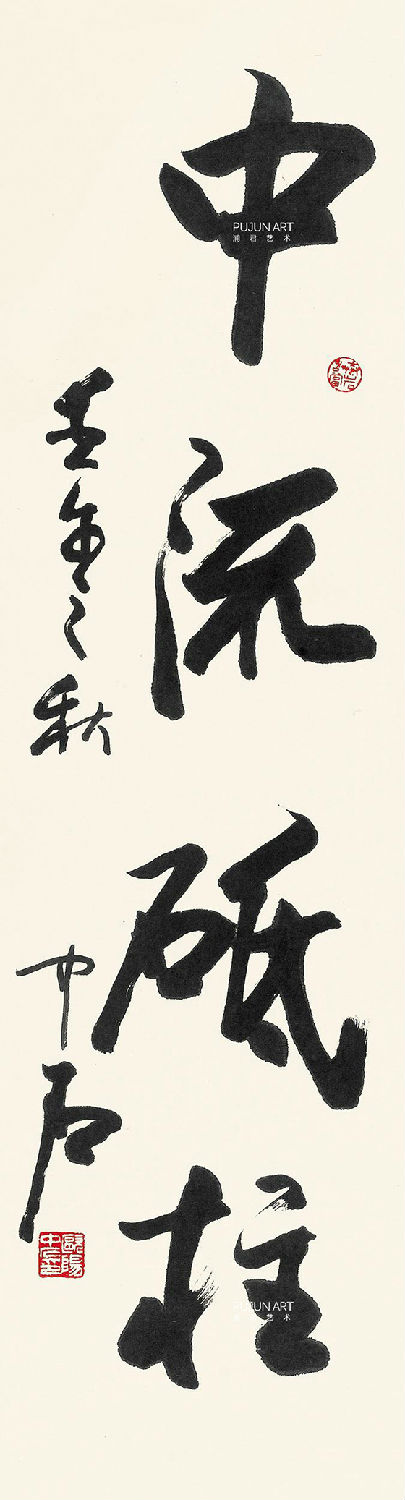 中流砥柱
之秋
中石
歐陽中石
PUJUN ART
浦君艺术
PUJUN ART
艺术